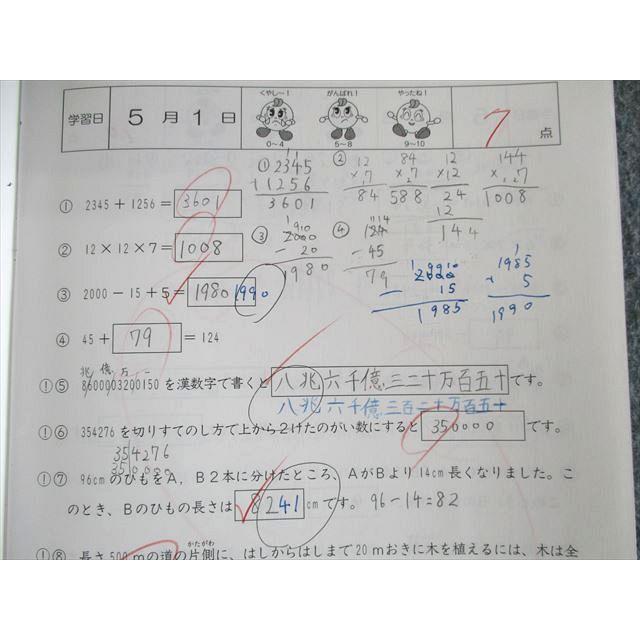 くやし〜！ がんばれ！ やったね！
学習日 5月1日 0〜4 5〜8 9〜10 7 点
① 2345 + 1256 = 3601
② 12 × 12 × 7 = 1008
③ 2000 − 15 + 5 = 1980 1990
④ 45 + 79 = 124
① 2345
+1256
3601
② 12
×.7
84
84
×.7
588
12
×12
24
12
144
144
×..7
1008
③ 2000
− 20
1980
④ 124
− 45
79
2000
− 15
1985
1985
+ 5
1990
兆 億 万 一
①⑤ 8600003200150 を漢数字で書くと 八兆六千億三二十万百五十 です。
八兆六千億三百二十万百五十
①⑥ 354276 を切りすてのし方で上から2けたのがい数にすると 350000 です。
354276
350000
①⑦ 96cm のひもをA，B2本に分けたところ、AがBより14cm 長くなりました。こ
のとき、Bのひもの長さは 82 41 cm です。 96−14=82
かたがわ
①⑧ 長さ500mの道の片側に、はしからはしまで20mおきに木を植えるには、木は全